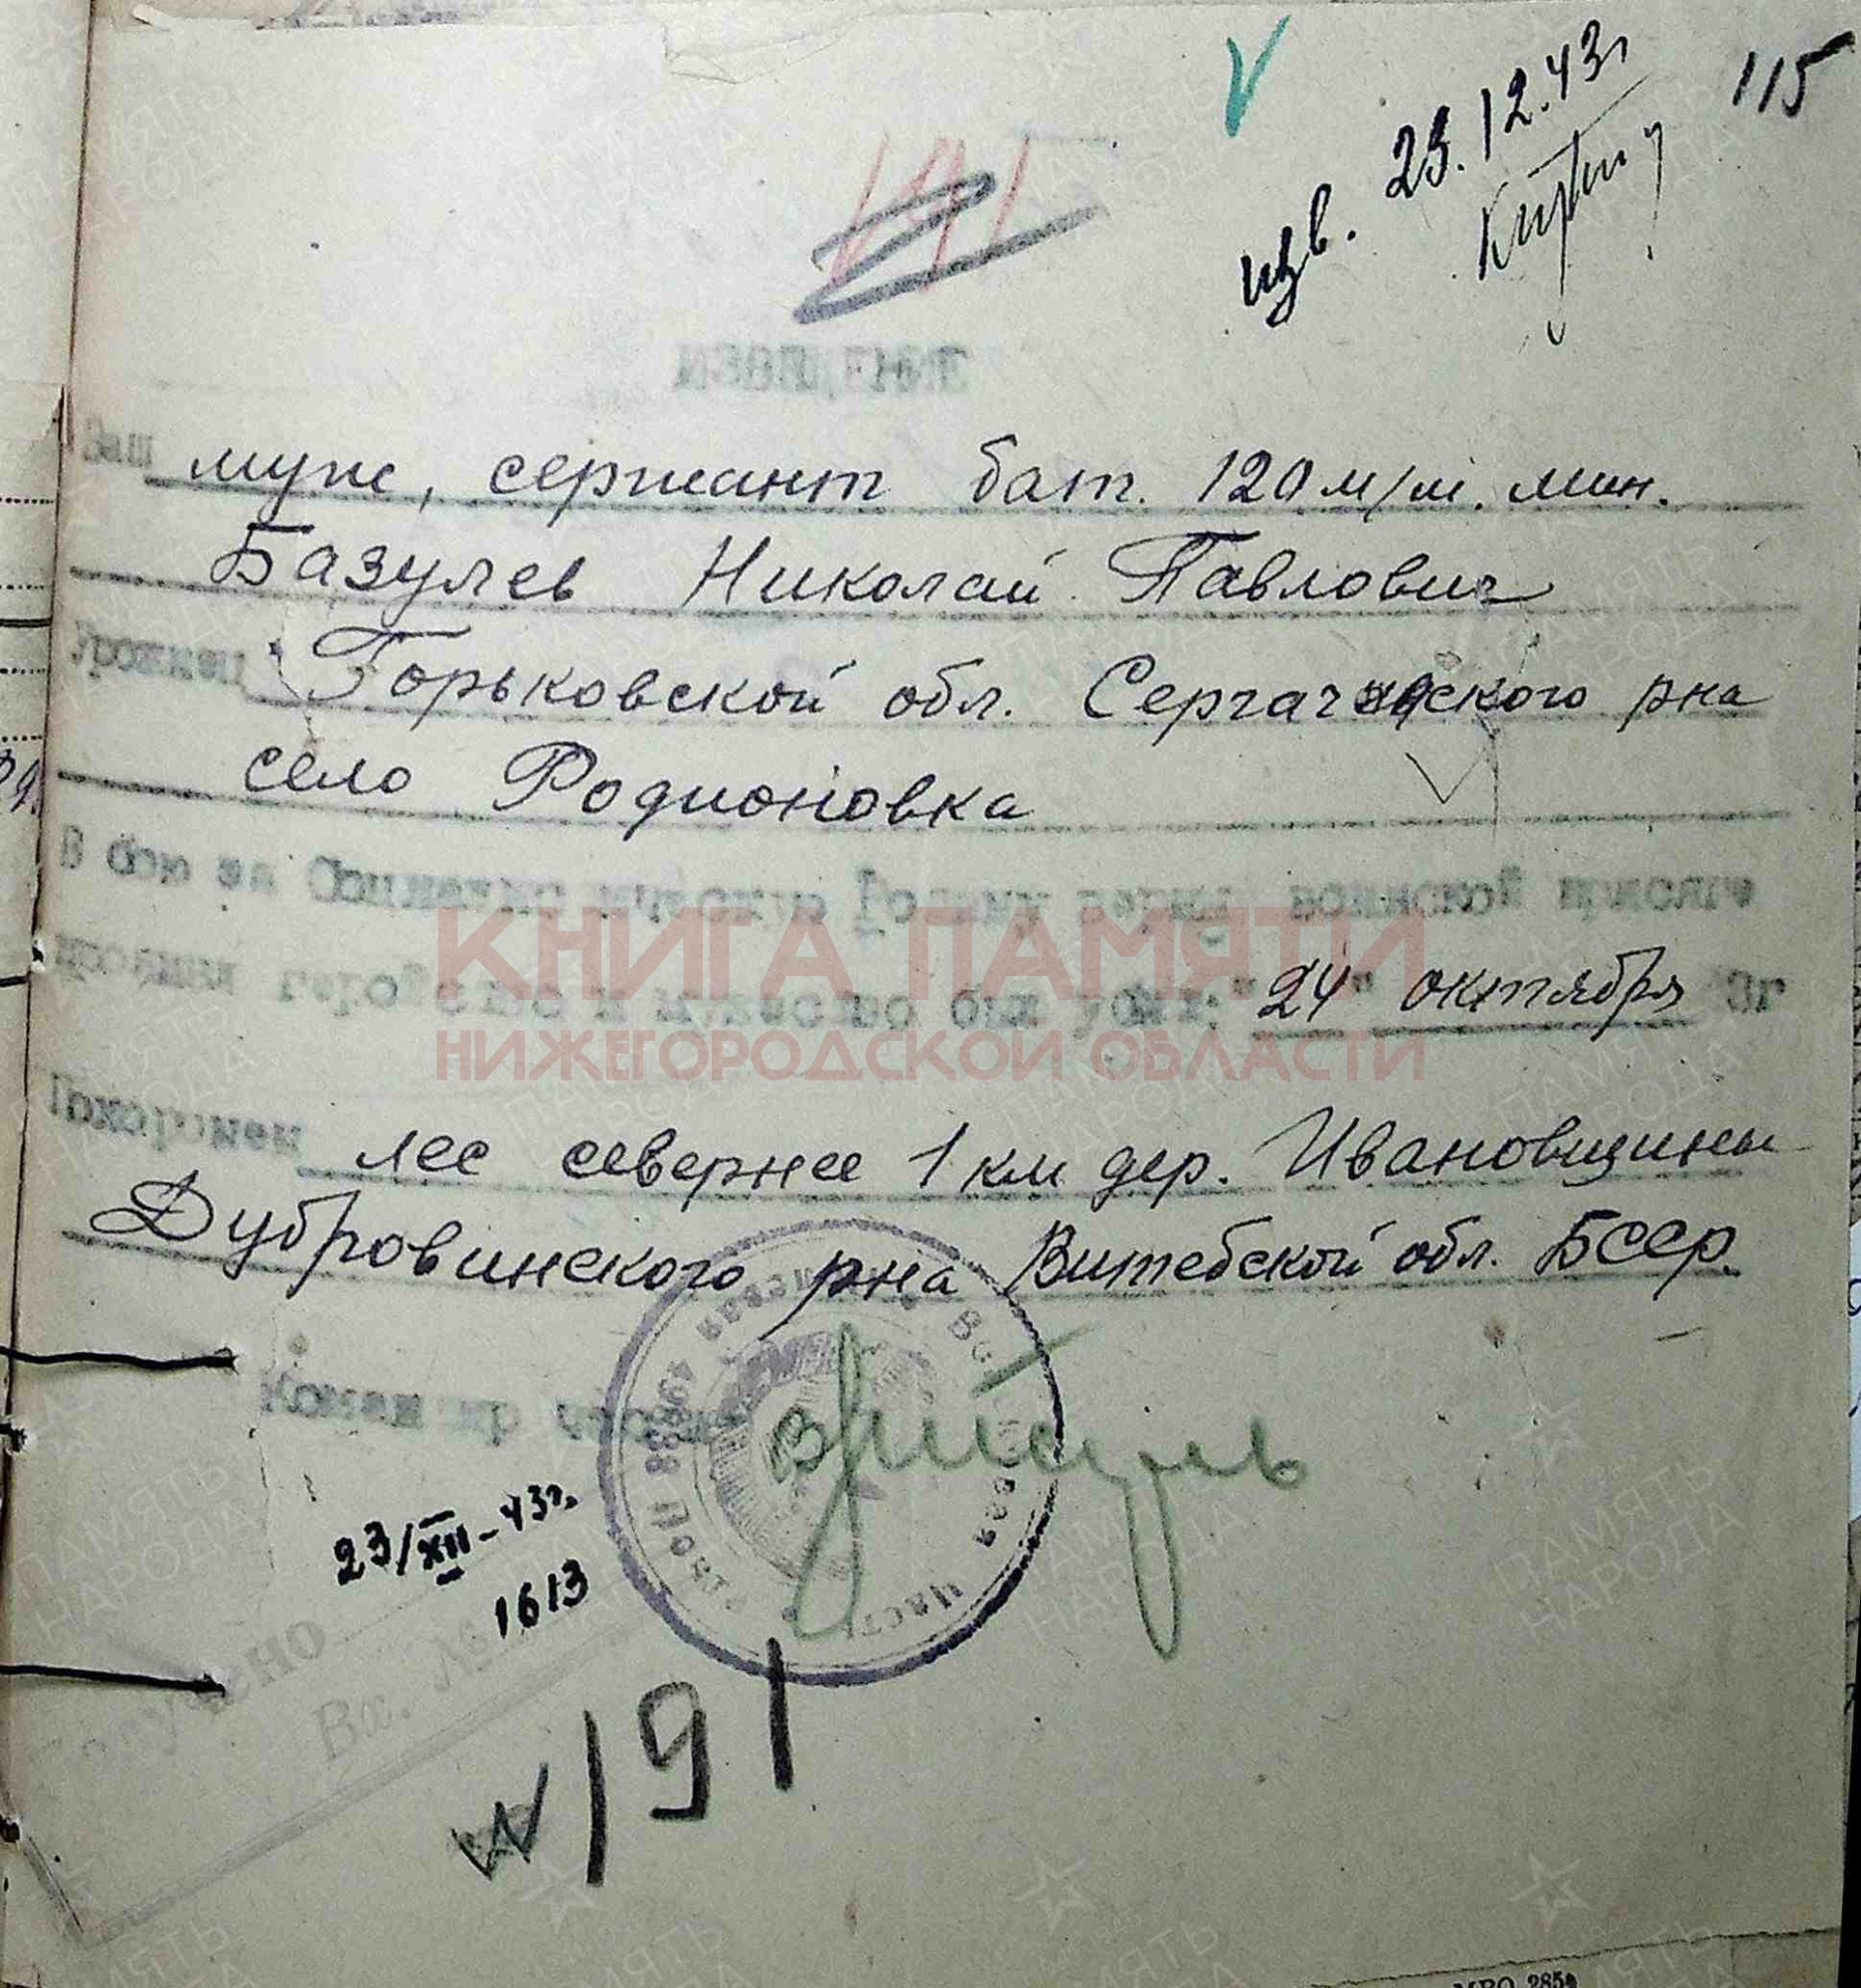 115
изв. 23.12.43г
191
ИЗВЕЩЕНИЕ
Ваш муж, сержант бат. 120 м/м. мин.
Базулев Николай Павлович
Урожнец Горьковской обл. Сергачского рна
село Родионовка
В бою за Социалистическую Родину верный воинской присяге
проявив геройство и мужество был убит "24" октября 3г
КНИГА ПАМЯТИ
НИЖЕГОРОДСКОЙ ОБЛАСТИ
Похоронен лес севернее 1 км дер. Ивановщины
Дубровинского рна Витебской обл. БССР.
Командир части
Полевая Почта Войсковая Часть
23/XII-43г.
1613
Получено
Вх. №
N 191
МВО 285
ПАМЯТЬ НАРОДА